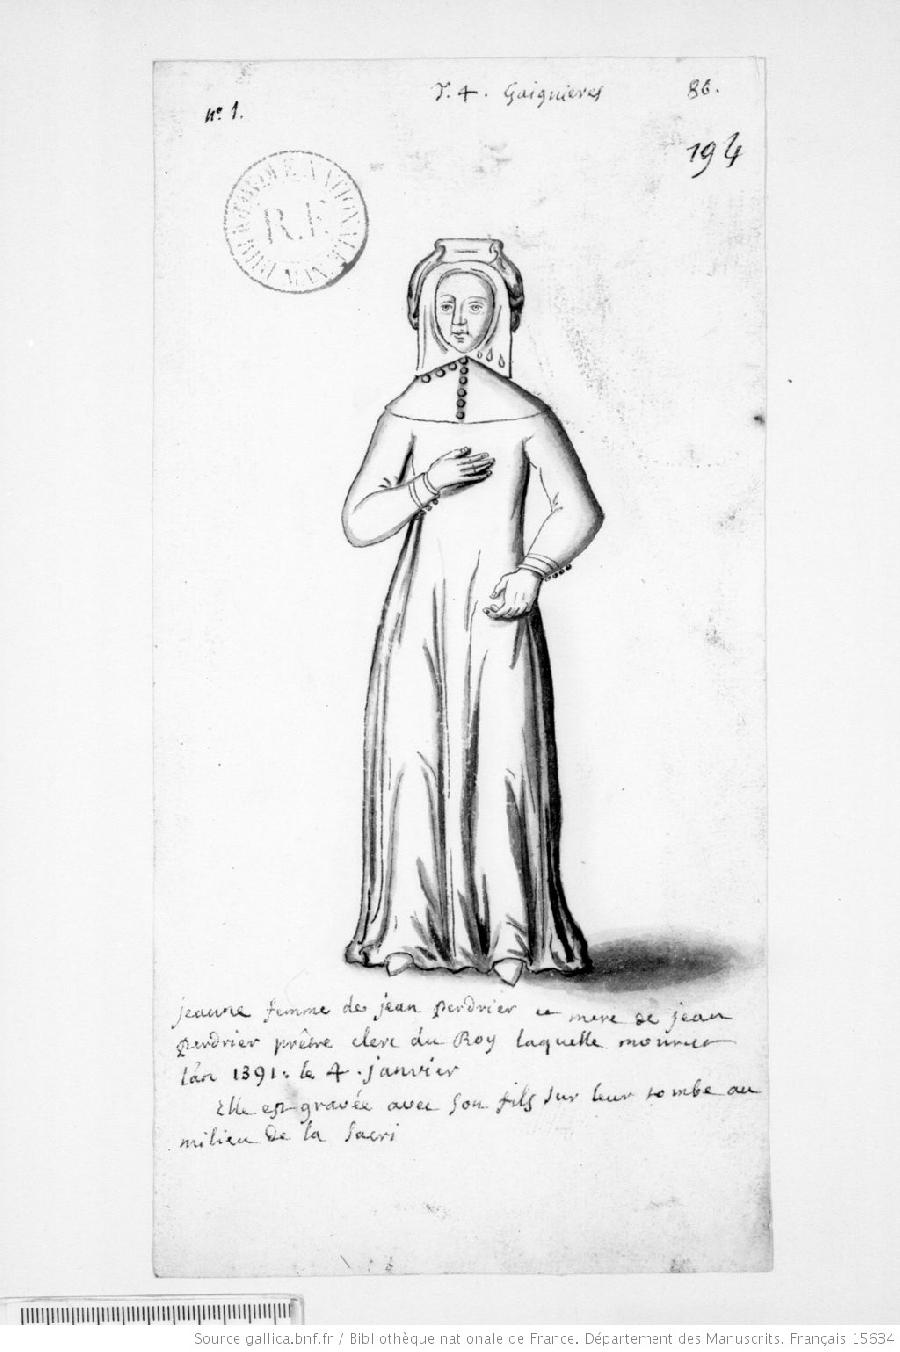 T. 4. Gaignieres 86.
nº 1.
194
BIBLIOTHEQUE NATIONALE MAN
R.F.
jeanne femme de jean perdrier et mere de jean
perdrier prêtre clerc du Roy laquelle mourut
l'an 1391. le 4. janvier
Elle est gravée avec son fils sur leur tombe au
milieu de la sacri
Source gallica.bnf.fr / Bibliothèque nationale de France. Département des Manuscrits. Français 15634